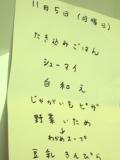 11月5日(日曜日)
たき込みごはん
シューマイ
白和え
じゃがいもピザ
野菜いため
↓
わかめスープ
豆乳 きんぴら